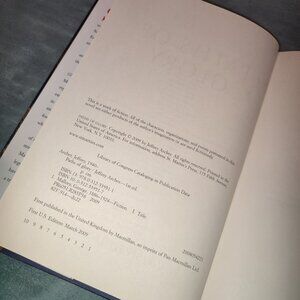 This is a work of fiction. All of the characters, organizations, and events portrayed in this
novel are either products of the author's imagination or are used fictitiously.
PATHS OF GLORY. Copyright © 2009 by Jeffrey Archer. All rights reserved. Printed in the
United States of America. For information, address St. Martin's Press, 175 Fifth Avenue,
New York, N.Y. 10010.
www.stmartins.com
Library of Congress Cataloging-in-Publication Data
Archer, Jeffrey, 1940–
Paths of glory / Jeffrey Archer.—1st ed.
p. cm.
1. Mallory, George, 1886–1924—Fiction. I. Title.
First published in the United Kingdom by Macmillan, an imprint of Pan Macmillan Ltd.
First U.S. Edition: March 2009
10 9 8 7 6 5 4 3 2 1